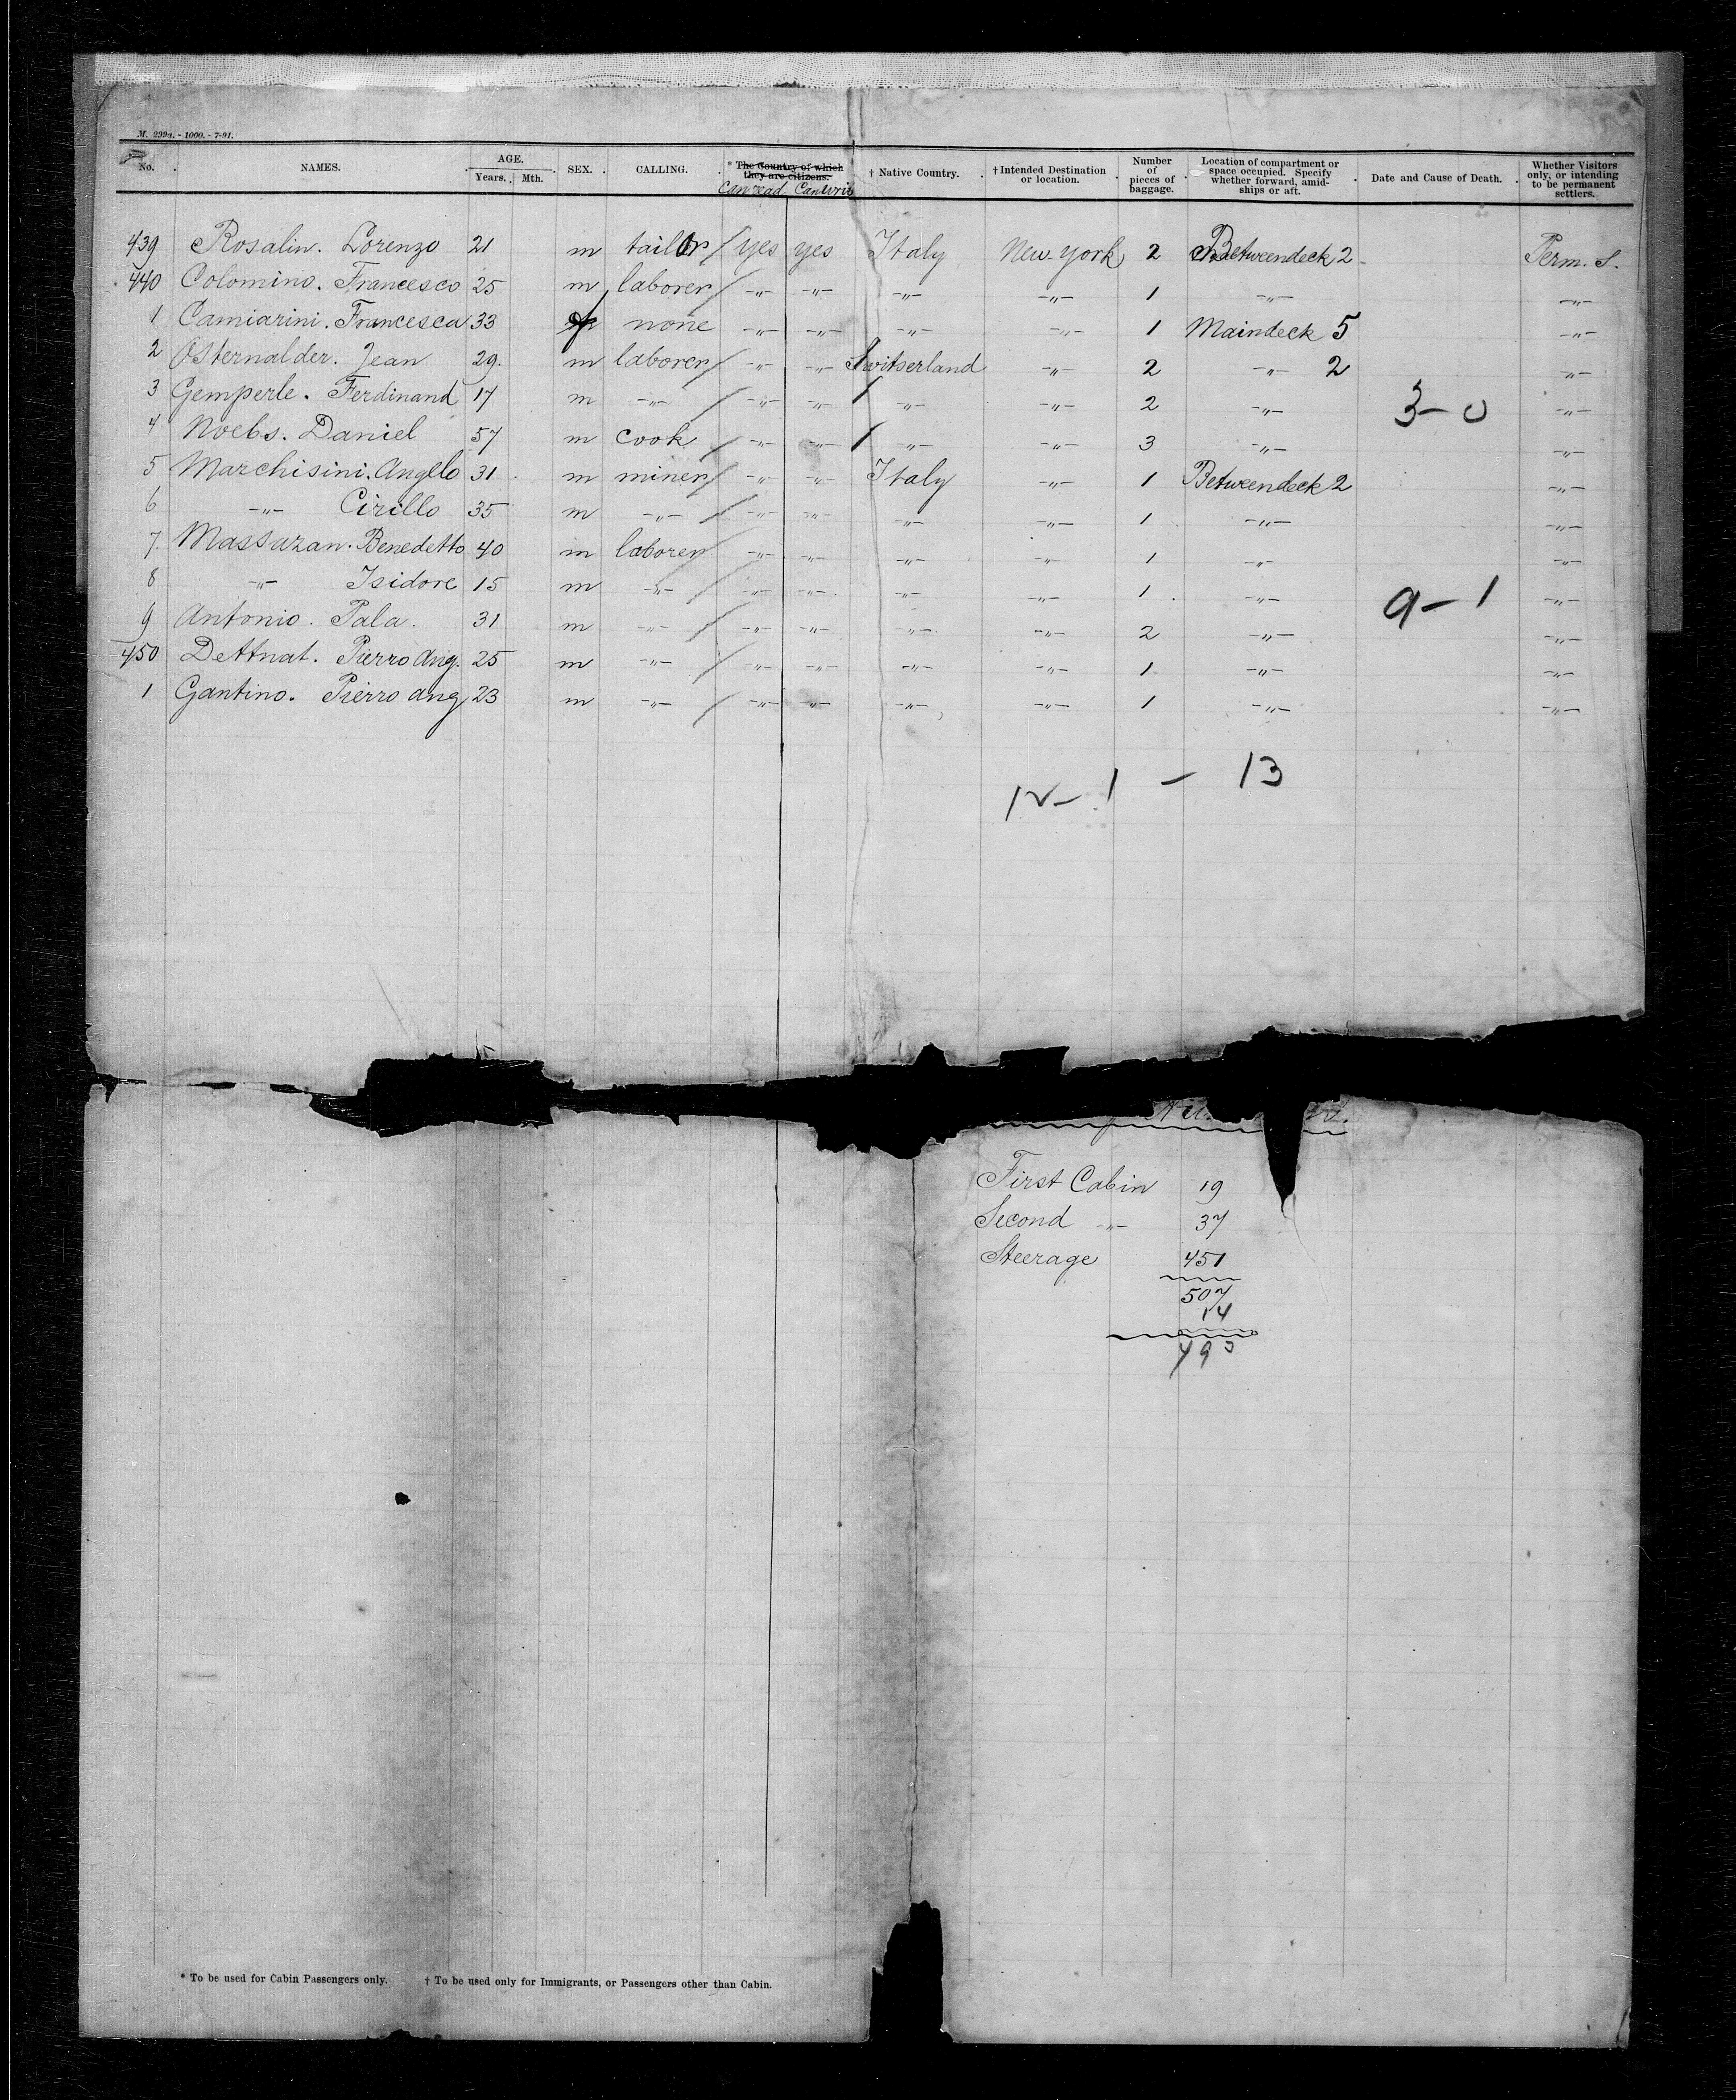 M. 299a. - 1000. - 7-91.
No. NAMES. AGE. Years. Mth. SEX. CALLING. * The Country of which they are citizens. Can read Can write † Native Country. † Intended Destination or location. Number of pieces of baggage. Location of compartment or space occupied. Specify whether forward, amidships or aft. Date and Cause of Death. Whether Visitors only, or intending to be permanent settlers.
439 Rosalin. Lorenzo 21 m tailor / yes yes Italy New York 2 Betweendeck 2 Perm. S.
440 Colomino. Francesco 25 m laborer / -"- -"- -"- -"- 1 -"- -"-
1 Camiarini. Francesca 33 f none -"- -"- -"- -"- 1 Maindeck 5 -"-
2 Osternalder. Jean 29. m laborer / -"- -"- Switserland -"- 2 -"- 2 -"-
3 Gemperle. Ferdinand 17 m -"- / -"- -"- / -"- -"- 2 -"- 3-0 -"-
4 Noebs. Daniel 57 m cook / -"- -"- / -"- -"- 3 -"- -"-
5 Marchisini. Angelo 31 m miner / -"- -"- Italy -"- 1 Betweendeck 2 -"-
6 -"- Cirillo 35 m -"- / -"- -"- -"- -"- 1 -"- -"-
7. Massazan. Benedetto 40 m laborer / -"- -"- -"- -"- 1 -"- -"-
8 -"- Isidore 15 m -"- / -"- -"- -"- -"- 1 -"- 9-1 -"-
9 Antonio. Pala. 31 m -"- / -"- -"- -"- -"- 2 -"- -"-
450 Dettnat. Pierro Ang. 25 m -"- / -"- -"- -"- -"- 1 -"- -"-
1 Gantino. Pierro Ang 23 m -"- / -"- -"- -"- -"- 1 -"- -"-
12-1 - 13
First Cabin 19
Second -"- 37
Steerage 451
507
14
493
* To be used for Cabin Passengers only. † To be used only for Immigrants, or Passengers other than Cabin.